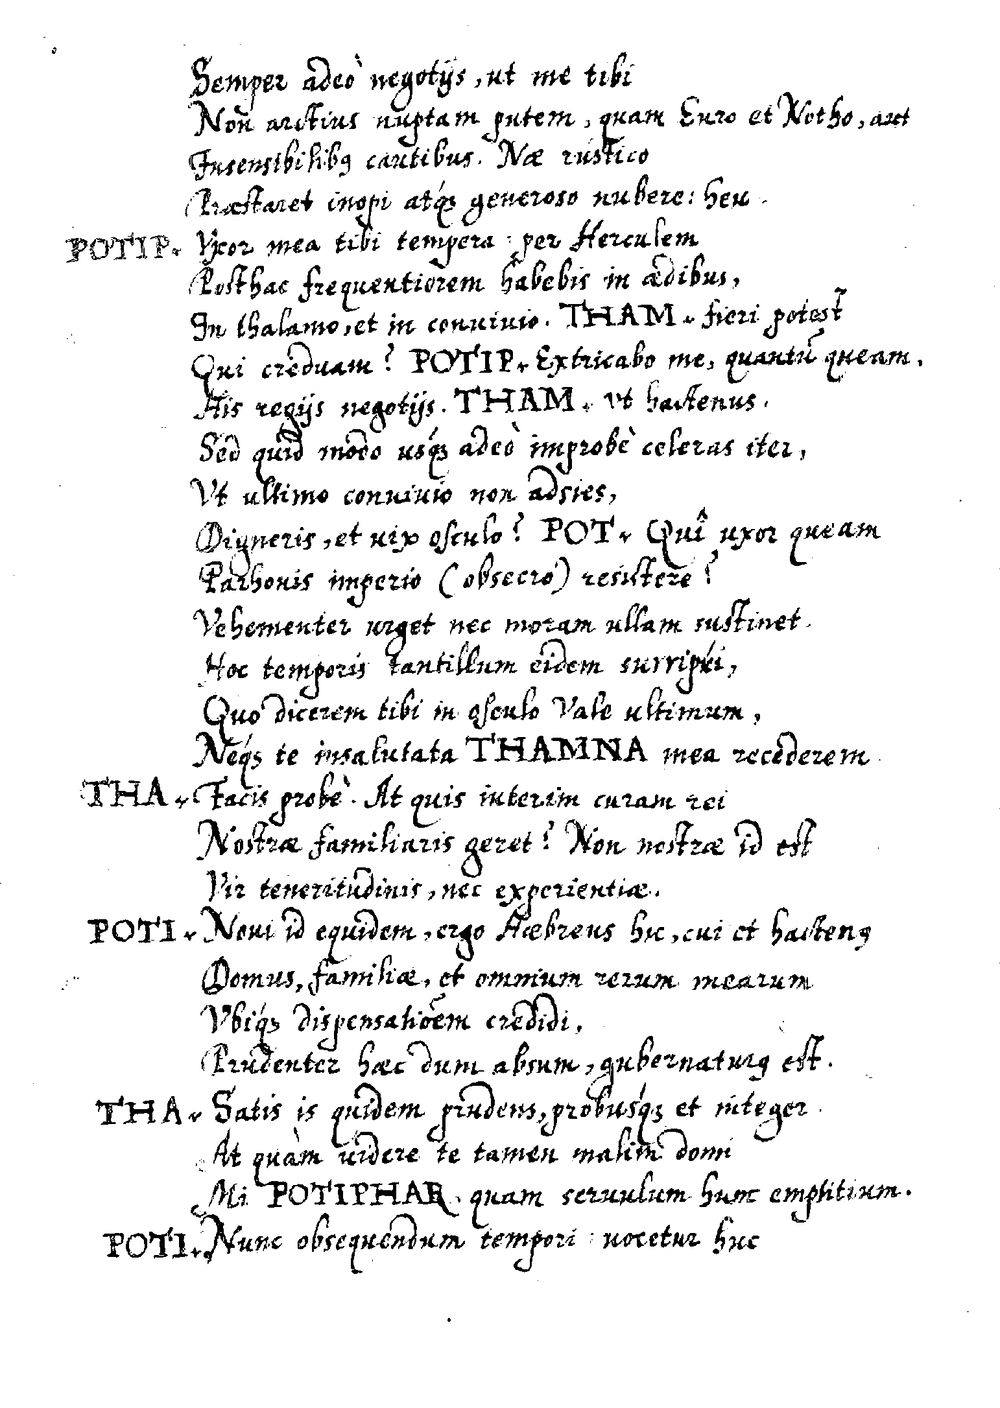 Semper adeò negotijs, ut me tibi
Non arctius nuptam putem, quam Euro et Notho, aut
Insensibilibꝫ cautibus. Næ rustico
Præstaret inopi atqꝫ generoso nubere: heu.
POTIP. Vxor mea tibi tempera: per Herculem
Posthac frequentiorem habebis in ædibus,
In thalamo, et in conuiuio. THAM. fieri potest
Qui creduam? POTIP. Extricabo me, quantũ queam.
His regijs negotijs. THAM. Vt hactenus.
Sed quid modo usqꝫ adeò improbè celeras iter,
Vt ultimo conuiuio non adsies,
Digneris, et uix osculo? POT. Quî uxor queam
Parhonis imperio (obsecro) resistere?
Vehementer urget nec moram ullam sustinet.
Hoc temporis tantillum eidem surripui,
Quo dicerem tibi in osculo Vale ultimum,
Neqꝫ te insalutata THAMNA mea recederem
THA. Facis probè. At quis interim curam rei
Nostræ familiaris geret? Non nostræ id est
Vir teneritudinis, nec experientiæ.
POTI. Noui id equidem, ergo Hæbreus hic, cui et hactenꝰ
Domus, familiæ, et omnium rerum mearum
Vbiqꝫ dispensationem credidi,
Prudenter hæc dum absum, gubernaturꝰ est.
THA. Satis is quidem prudens, probusqꝫ et integer.
At quàm uidere te tamen malim domi
Mi POTIPHAR. quam seruulum hunc emptitium.
POTI. Nunc obsequendum tempori: uocetur huc